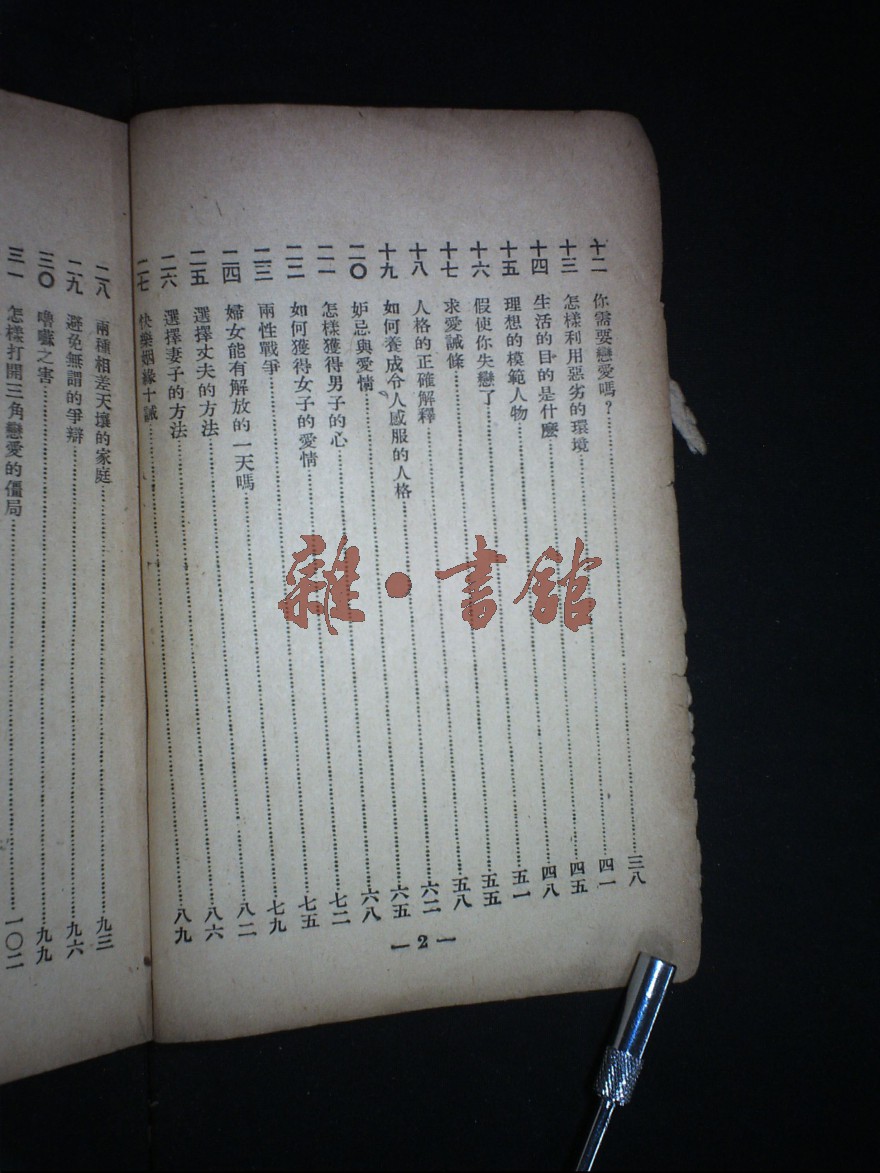 十二 你需要戀愛嗎？……三八
十三 怎樣利用惡劣的環境……四一
十四 生活的目的是什麼……四五
十五 理想的模範人物……四八
十六 假使你失戀了……五一
十七 求愛誡條……五五
十八 人格的正確解釋……五八
十九 如何養成令人感服的人格……六二
二〇 妒忌與愛情……六五
二一 怎樣獲得男子的心……六八
二二 如何獲得女子的愛情……七二
二三 兩性戰爭……七五
二四 婦女能有解放的一天嗎……七九
二五 選擇丈夫的方法……八二
二六 選擇妻子的方法……八六
二七 快樂姻緣十誡……八九
— 2 —
二八 兩種相差天壤的家庭……九三
二九 避免無謂的爭辯……九六
三〇 嚕囌之害……九九
三一 怎樣打開三角戀愛的僵局……一〇二
雜·書館